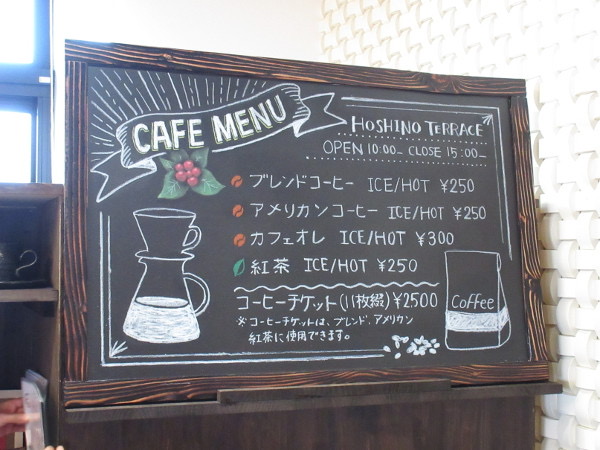 CAFE MENU
HOSHINO TERRACE
OPEN 10:00_ CLOSE 15:00_
ブレンドコーヒー ICE/HOT ¥250
アメリカンコーヒー ICE/HOT ¥250
カフェオレ ICE/HOT ¥300
紅茶 ICE/HOT ¥250
コーヒーチケット(11枚綴)¥2500
※コーヒーチケットは、ブレンド、アメリカン
紅茶に使用できます。
Coffee